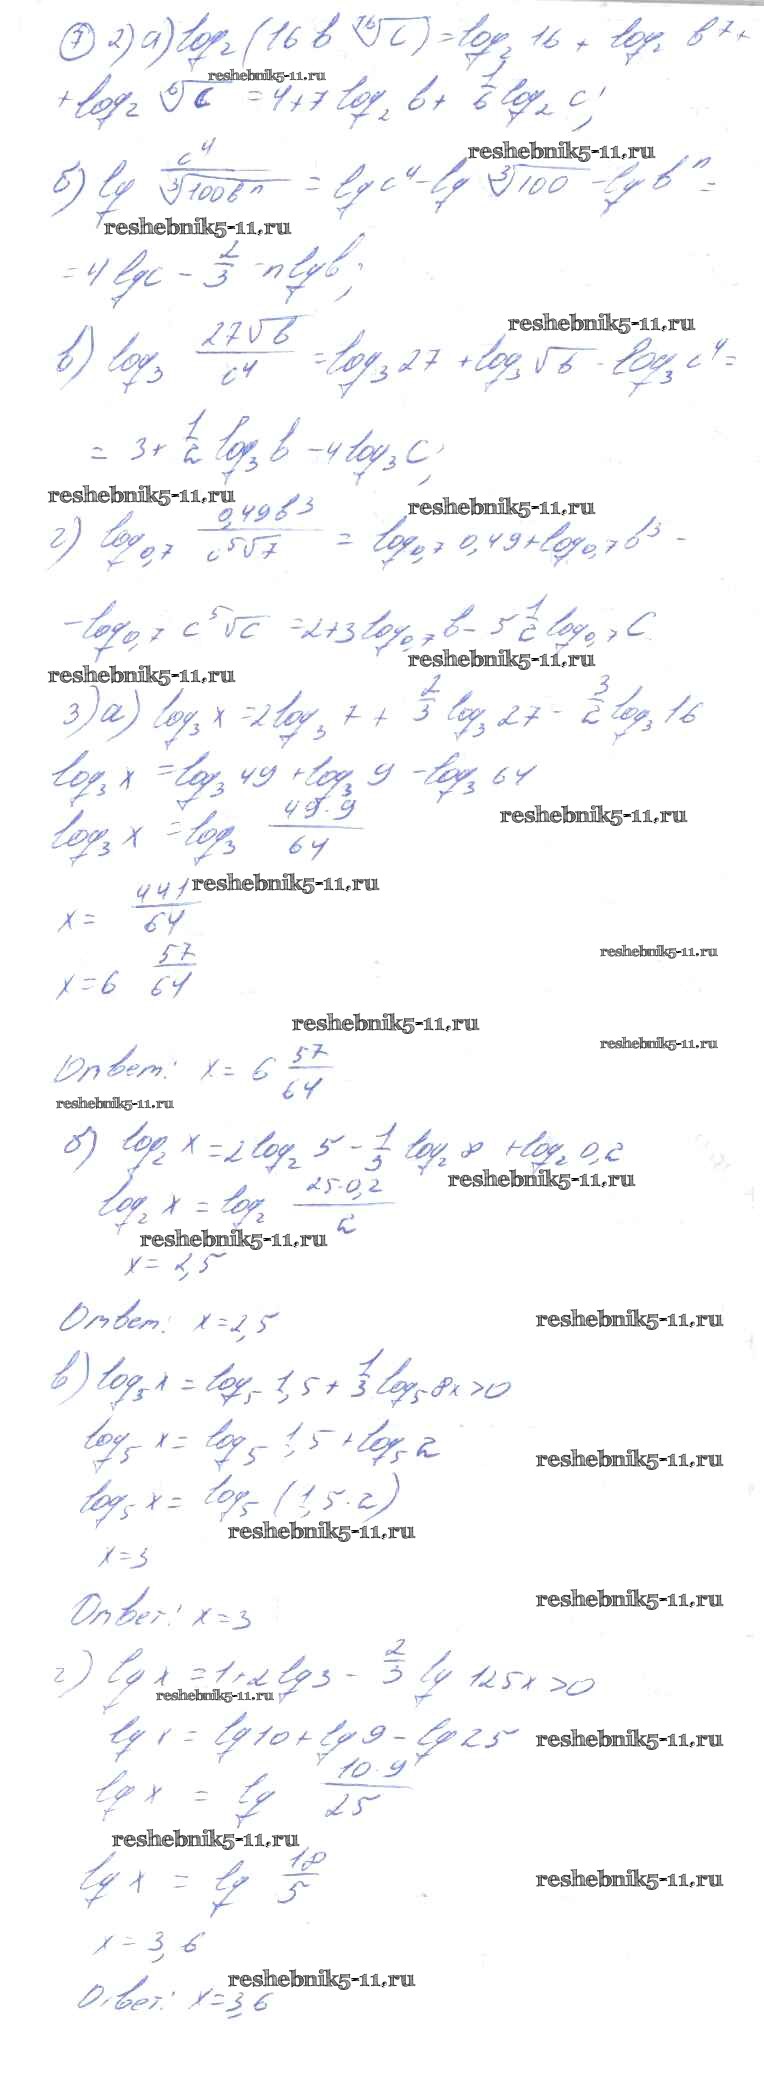 ⑦ 2) а) log₂ (16 b⁷ ⁶√c) = log₂ 16 + log₂ b⁷ +
reshebnik5-11.ru
+ log₂ ⁶√c = 4+7 log₂ b + 1/6 log₂ c;
reshebnik5-11.ru
б) lg c⁴/∛100bⁿ = lg c⁴ - lg ∛100 - lg bⁿ =
reshebnik5-11.ru
= 4 lg c - 2/3 - n lg b;
reshebnik5-11.ru
в) log₃ 27√b/c⁴ = log₃ 27 + log₃ √b - log₃ c⁴ =
= 3 + 1/2 log₃ b - 4 log₃ c;
reshebnik5-11.ru
reshebnik5-11.ru
г) log₀,₇ 0,49b³/c⁵√7 = log₀,₇ 0,49 + log₀,₇ b³ -
- log₀,₇ c⁵√c = 2+3 log₀,₇ b - 5 1/2 log₀,₇ c
reshebnik5-11.ru
reshebnik5-11.ru
3) а) log₃ x = 2 log₃ 7 + 2/3 log₃ 27 - 3/2 log₃ 16
log₃ x = log₃ 49 + log₃ 9 - log₃ 64
reshebnik5-11.ru
log₃ x = log₃ 49·9/64
reshebnik5-11.ru
x = 441/64
reshebnik5-11.ru
x = 6 57/64
reshebnik5-11.ru
reshebnik5-11.ru
Ответ: x = 6 57/64
reshebnik5-11.ru
б) log₂ x = 2 log₂ 5 - 1/3 log₂ 8 + log₂ 0,2
reshebnik5-11.ru
log₂ x = log₂ 25·0,2/2
reshebnik5-11.ru
x = 2,5
Ответ: x = 2,5
reshebnik5-11.ru
в) log₅ x = log₅ 1,5 + 1/3 log₅ 8 x>0
log₅ x = log₅ 1,5 + log₅ 2
reshebnik5-11.ru
log₅ x = log₅ (1,5·2)
reshebnik5-11.ru
x = 3
Ответ: x = 3
reshebnik5-11.ru
г) lg x = 1+2 lg 3 - 2/3 lg 125 x>0
reshebnik5-11.ru
lg x = lg 10 + lg 9 - lg 25
reshebnik5-11.ru
lg x = lg 10·9/25
reshebnik5-11.ru
lg x = lg 18/5
reshebnik5-11.ru
x = 3,6
reshebnik5-11.ru
Ответ: x = 3,6